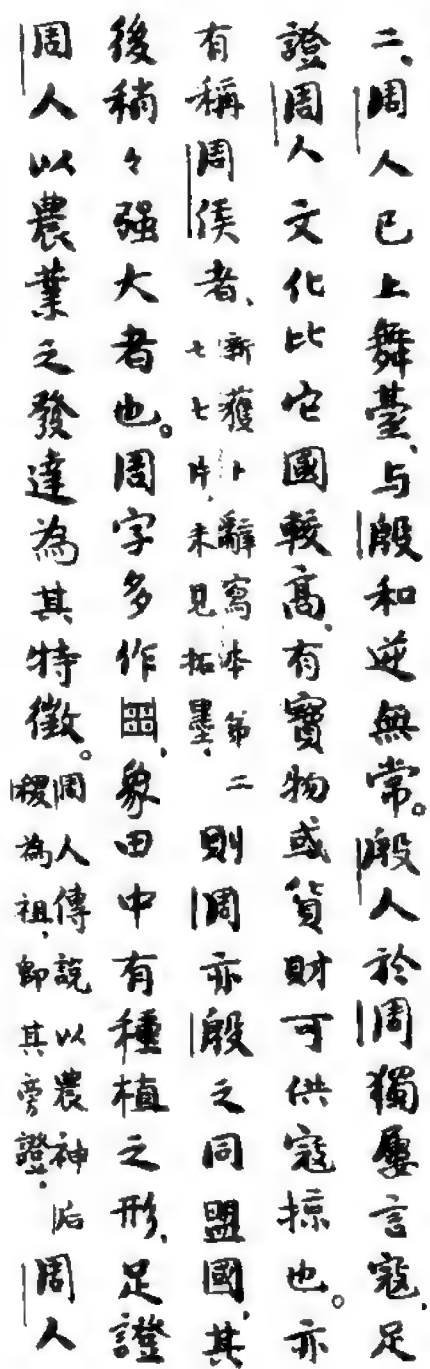 二、周人已上舞臺、与殷和逆無常。殷人於周獨屢言寇、足
證周人文化比它國較高、有寶物或貨財可供寇掠也。亦
有稱周侯者、新獲卜辭寫本第二七七片、未見拓墨、則周亦殷之同盟國、其
後稍々强大者也。周字多作𤰔、象田中有種植之形、足證
周人以農業之發達為其特徵。周人傳說以農神后稷為祖、即其旁證。周人